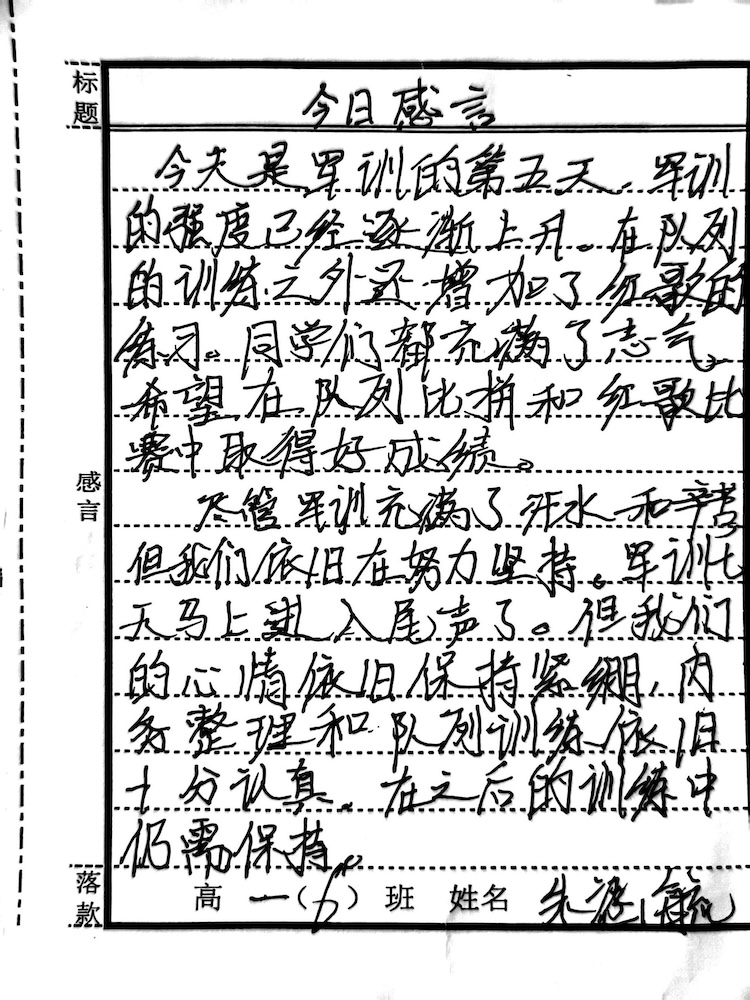 标题
今日感言
今天是军训的第五天，军训
的强度已经逐渐上升。在队列
的训练之外还增加了红歌的
练习。同学们都充满了志气，
希望在队列比拼和红歌比
赛中取得好成绩。
感言
尽管军训充满了汗水和辛苦
但我们依旧在努力坚持。军训七
天马上进入尾声了。但我们
的心情依旧保持紧绷，内
务整理和队列训练依旧
十分认真。在之后的训练中
仍需保持。
落款
高一(6)班 姓名 朱